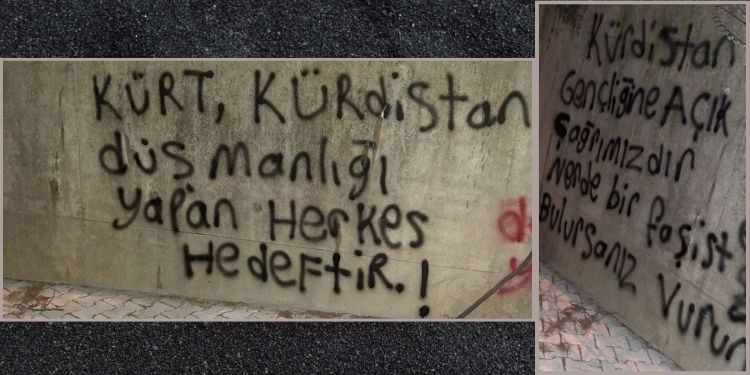 KÜRT, KÜRdistan
düşmanlığı
yapan Herkes
HedeFtiR.!
Kürdistan
Gençliğine AÇIK
Çağrımızdır
Nerde bir faşist
Bulursanız Vurun